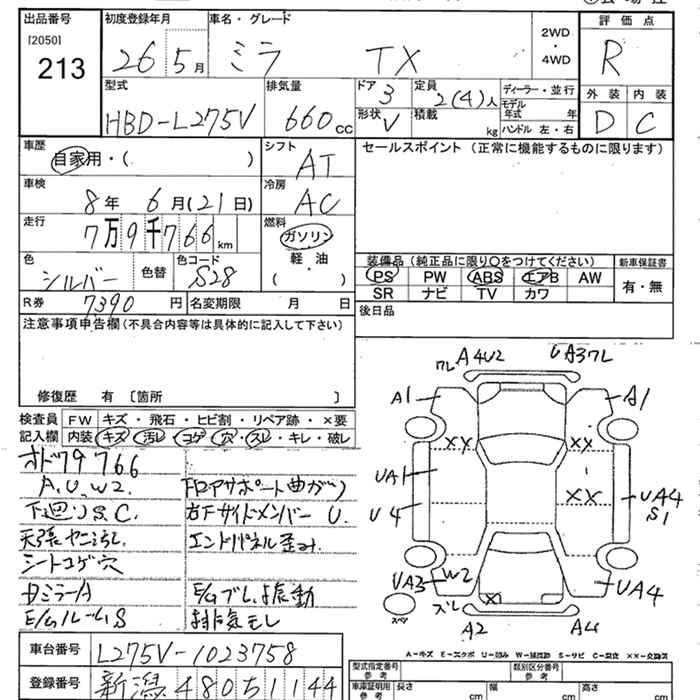 出品番号
[2050]
213
初度登録年月
26 5月
車名・グレード
ミラ TX
2WD
・
4WD
評価点
R
外装 内装
D C
型式
HBD-L275V
排気量
660cc
ドア 3
形状 V
定員
2(4)人
積載 kg
ディーラー・並行
モデル年式 年
ハンドル 左・右
車歴
自家用・( )
シフト
AT
車検
8年 6月(21日)
冷房
AC
走行
7万9千766km
燃料
ガソリン
軽・油
( )
色
シルバー
色替
色コード
S28
R券 7390円
名変期限 月 日
セールスポイント(正常に機能するものに限ります)
装備品(純正品に限り○をつけてください)
PS PW ABS エアB AW
SR ナビ TV カワ
新車保証書
有・無
後日品
注意事項申告欄(不具合内容等は具体的に記入して下さい)
修復歴 有〔箇所 〕
検査員記入欄
FW キズ・飛石・ヒビ割・リペア跡・×要
内装 キズ・汚レ・コゲ・穴・スレ・キレ・破レ
オド79766
A.U.W2.
下廻りS.C.
天張ヤニ汚し
シートコゲ穴
DミラーA
E/GルームS
下ロアサポート曲がり
右下サイドメンバー U.
エンドパネル歪み.
E/Gブレ、振動
排気モレ
ワレ A4U2
UA3ワレ
A1
A1
XX
XX
UA1
XX
UA4
S1
U4
UA3
W2
UA4
ズレ
X
スペア
A2
A4
A－キズ E－エクボ U－凹み W－補修跡 S－サビ C－腐食 XX－交換済
車台番号
L275V-1023758
登録番号
新潟 480 5 1144
型式指定番号
参考
類別区分番号
参考
車庫証明用
参考
長さ cm
幅 cm
高さ cm